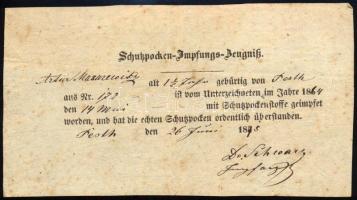 Schutzpocken-Impfungs-Zeugniß.
Artur alt 1½ Jahr gebürtig von Pesth
aus Nr. 172 ist vom Unterzeichneten im Jahre 1864
den 14 Mai mit Schutzpockenstoffe geimpft
worden, und hat die echten Schutzpocken ordentlich überstanden.
Pesth den 26 Juni 18
Dr Schwarz